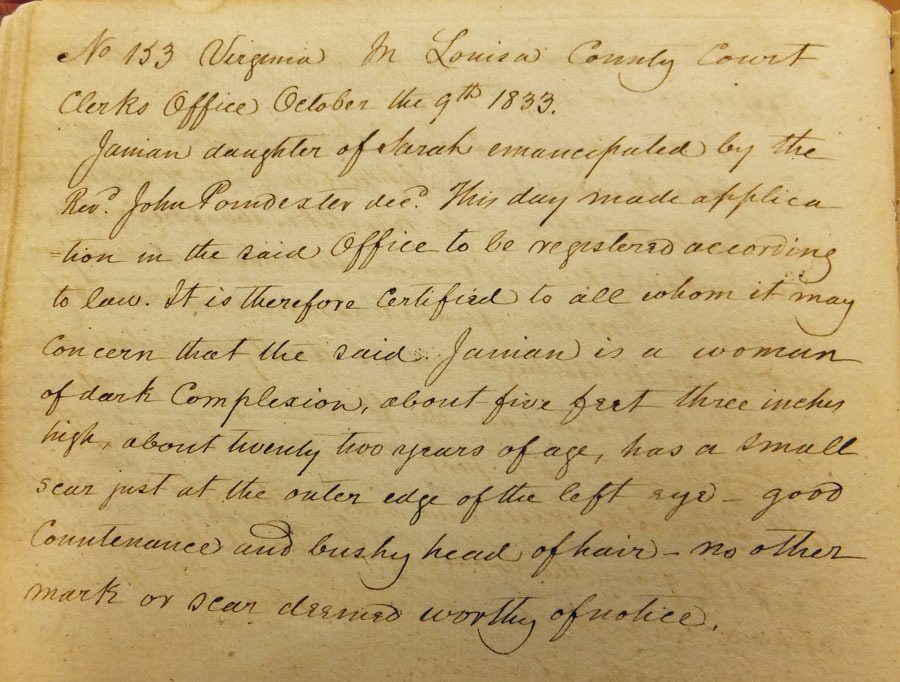 No 153 Virginia In Louisa County Court
Clerks Office October the 9th 1833.
Janian daughter of Sarah emancipated by the
Revd. John Poindexter decd. This day made applica
=tion in the said Office to be registered according
to law. It is therefore Certified to all whom it may
Concern that the said Janian is a woman
of dark Complexion, about five feet three inches
high, about twenty two years of age, has a Small
scar just at the outer edge of the left eye - good
Countenance and bushy head of hair - no other
mark or scar deemed worthy of notice.